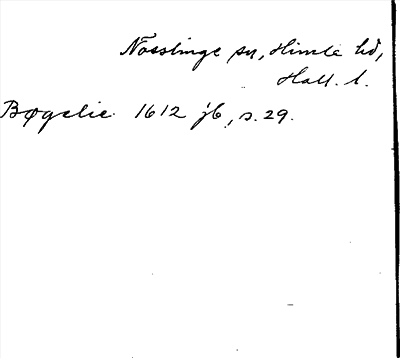 Nösslinge sn, Himle hd,
Hall. l.
Bøgelie 1612 jb, s. 29.